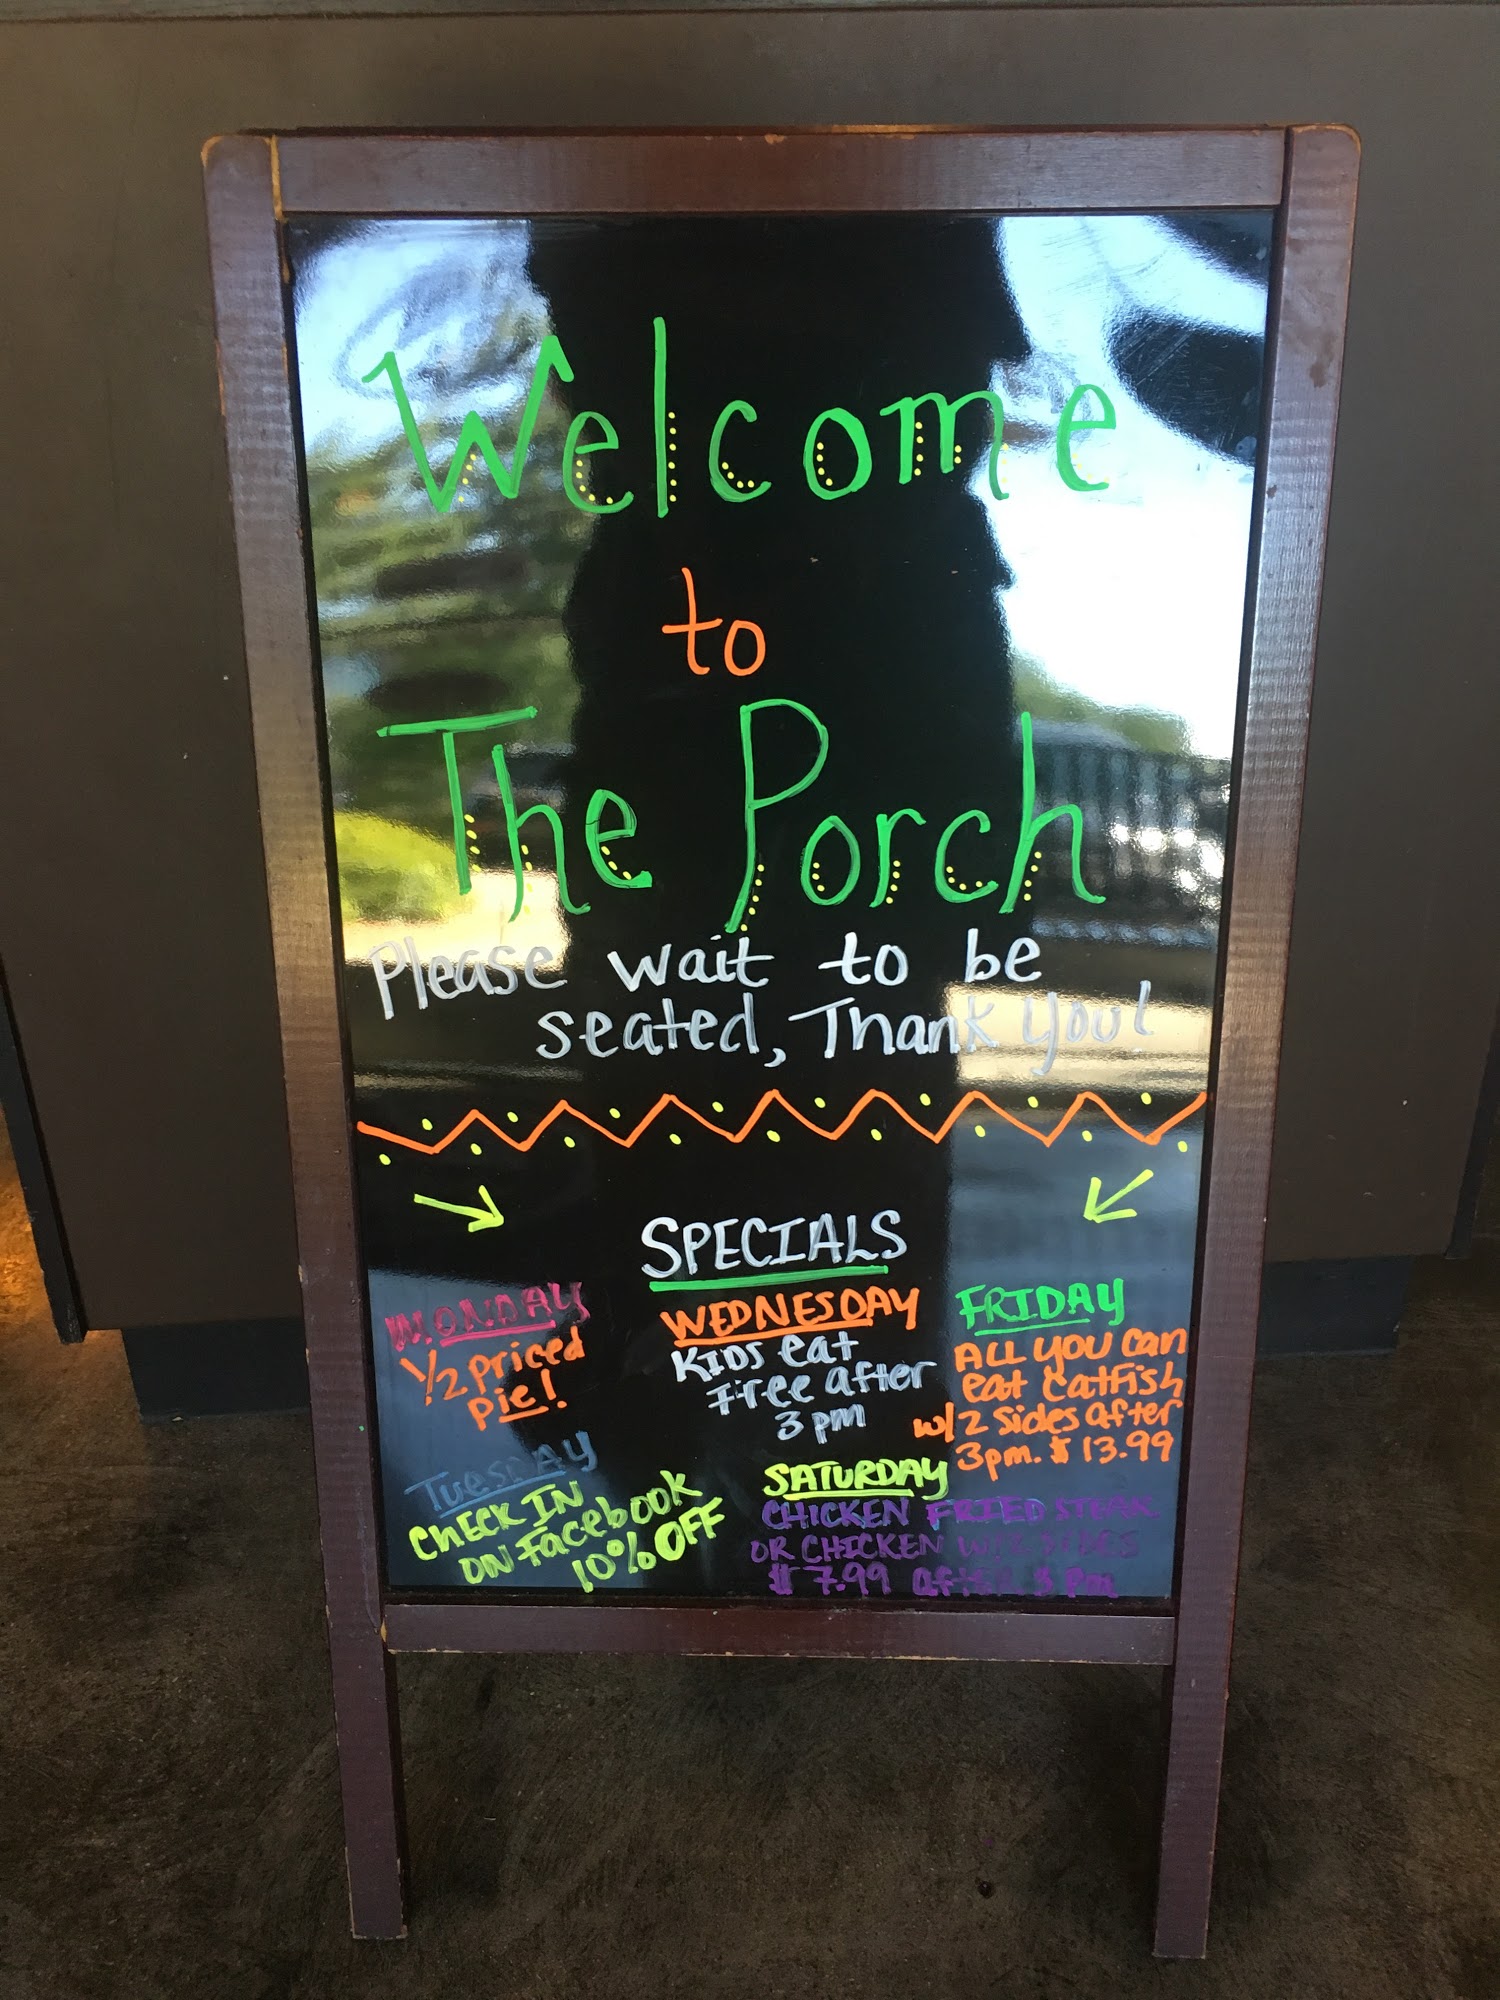 Welcome
to
The Porch
Please wait to be
seated, Thank you!
SPECIALS
MONDAY
1/2 priced
pie!
Tuesday
Check IN
ON Facebook
10% OFF
WEDNESDAY
Kids eat
Free after
3 pm
FRIDAY
ALL you can
eat catfish
w/2 sides after
3pm. $13.99
SATURDAY
CHICKEN FRIED STEAK
OR CHICKEN W/2 SIDES
$7.99 after 3 pm